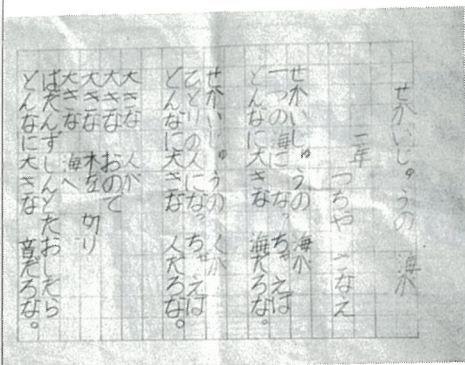 せかいじゅうの 海が
二年
つちや
せかいじゅうの 海が
一つの海に なっちゃえば
どんなに大きな 海だろな。
せかいじゅうの 人が
ひとりの人になっちゃえば
どんなに大きな 人だろな。
大きな 人が
大きな おので
大きな 木を 切り
大きな 海へ
ばたんずしんとたおしたら
どんなに大きな 音だろな。